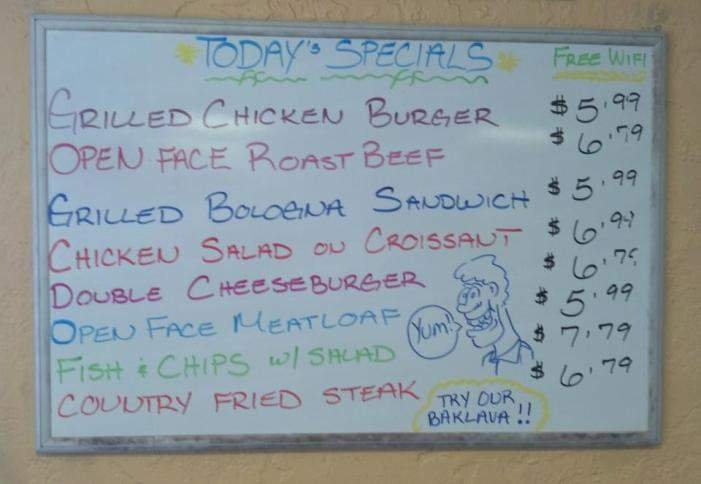 TODAY'S SPECIALS FREE WIFI
GRILLED CHICKEN BURGER $5.99
OPEN FACE ROAST BEEF $6.79
GRILLED BOLOGNA SANDWICH $5.99
CHICKEN SALAD ON CROISSANT $6.99
DOUBLE CHEESEBURGER $6.79
OPEN FACE MEATLOAF $5.99
Yum!
FISH & CHIPS W/ SALAD $7.79
COUNTRY FRIED STEAK $6.79
TRY OUR
BAKLAVA!!